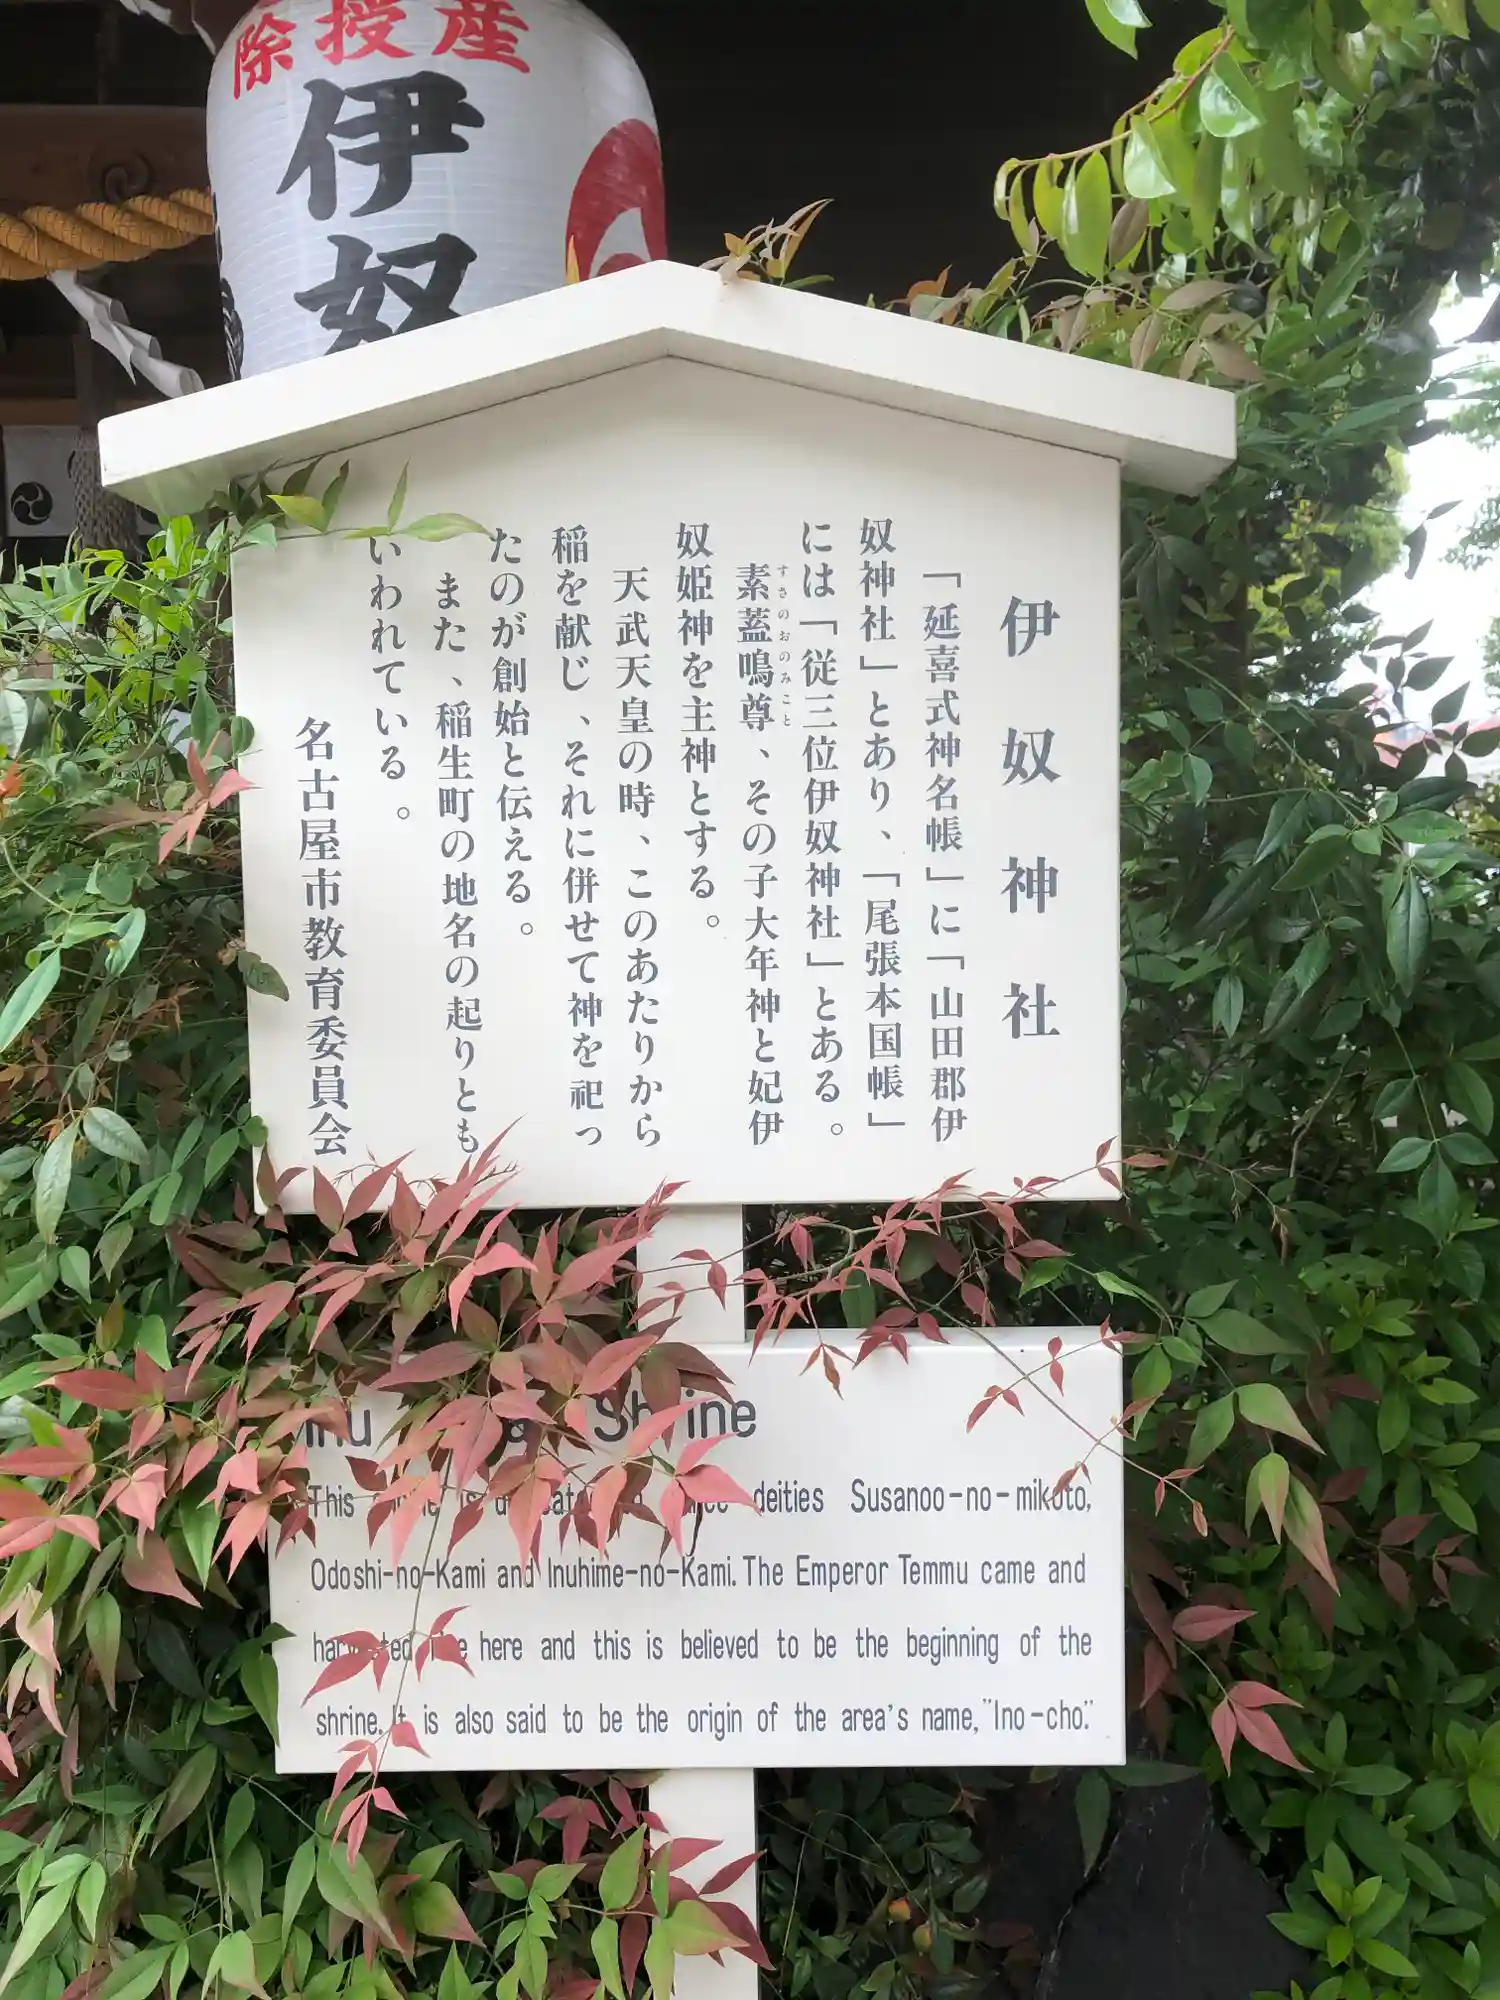 除授産
伊
奴
伊奴神社
「延喜式神名帳」に「山田郡伊
奴神社」とあり、「尾張本国帳」
には「従三位伊奴神社」とある。
素蓋鳴尊、その子大年神と妃伊
すさのおのみこと
奴姫神を主神とする。
天武天皇の時、このあたりから
稲を献じ、それに併せて神を祀っ
たのが創始と伝える。
また、稲生町の地名の起りとも
いわれている。
名古屋市教育委員会
Shrine
This deities Susanoo-no-mikoto,
Odoshi-no-Kami and Inuhime-no-Kami. The Emperor Temmu came and
harvested here and this is believed to be the beginning of the
shrine. It is also said to be the origin of the area's name, "Ino-cho."